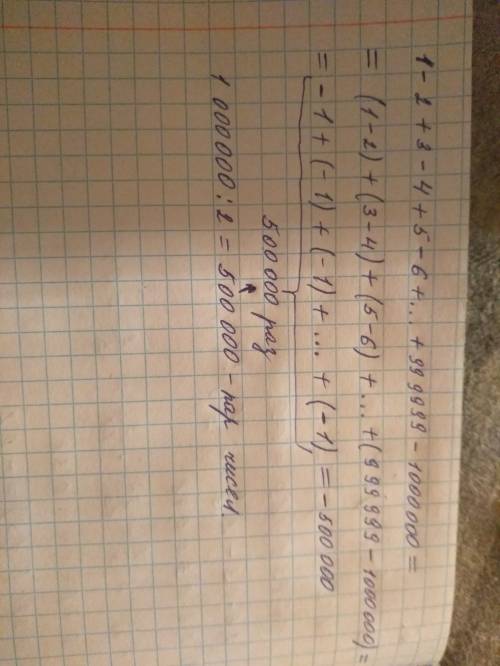 1 - 2 + 3 - 4 + 5 - 6 + ... + 999999 - 1000000 =
= (1-2) + (3-4) + (5-6) + ... + (999999 - 1000000) =
= - 1 + (-1) + (-1) + ... + (-1) = - 500000
500 000 раз
1 000000 : 2 = 500 000 - пар чисел.